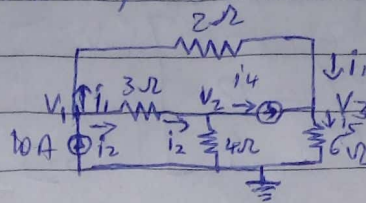 2Ω
i4 ↓i1
V1 ↑i1 3Ω V2 → V3
10A → i2 → i2 4Ω ↓ 6Ω